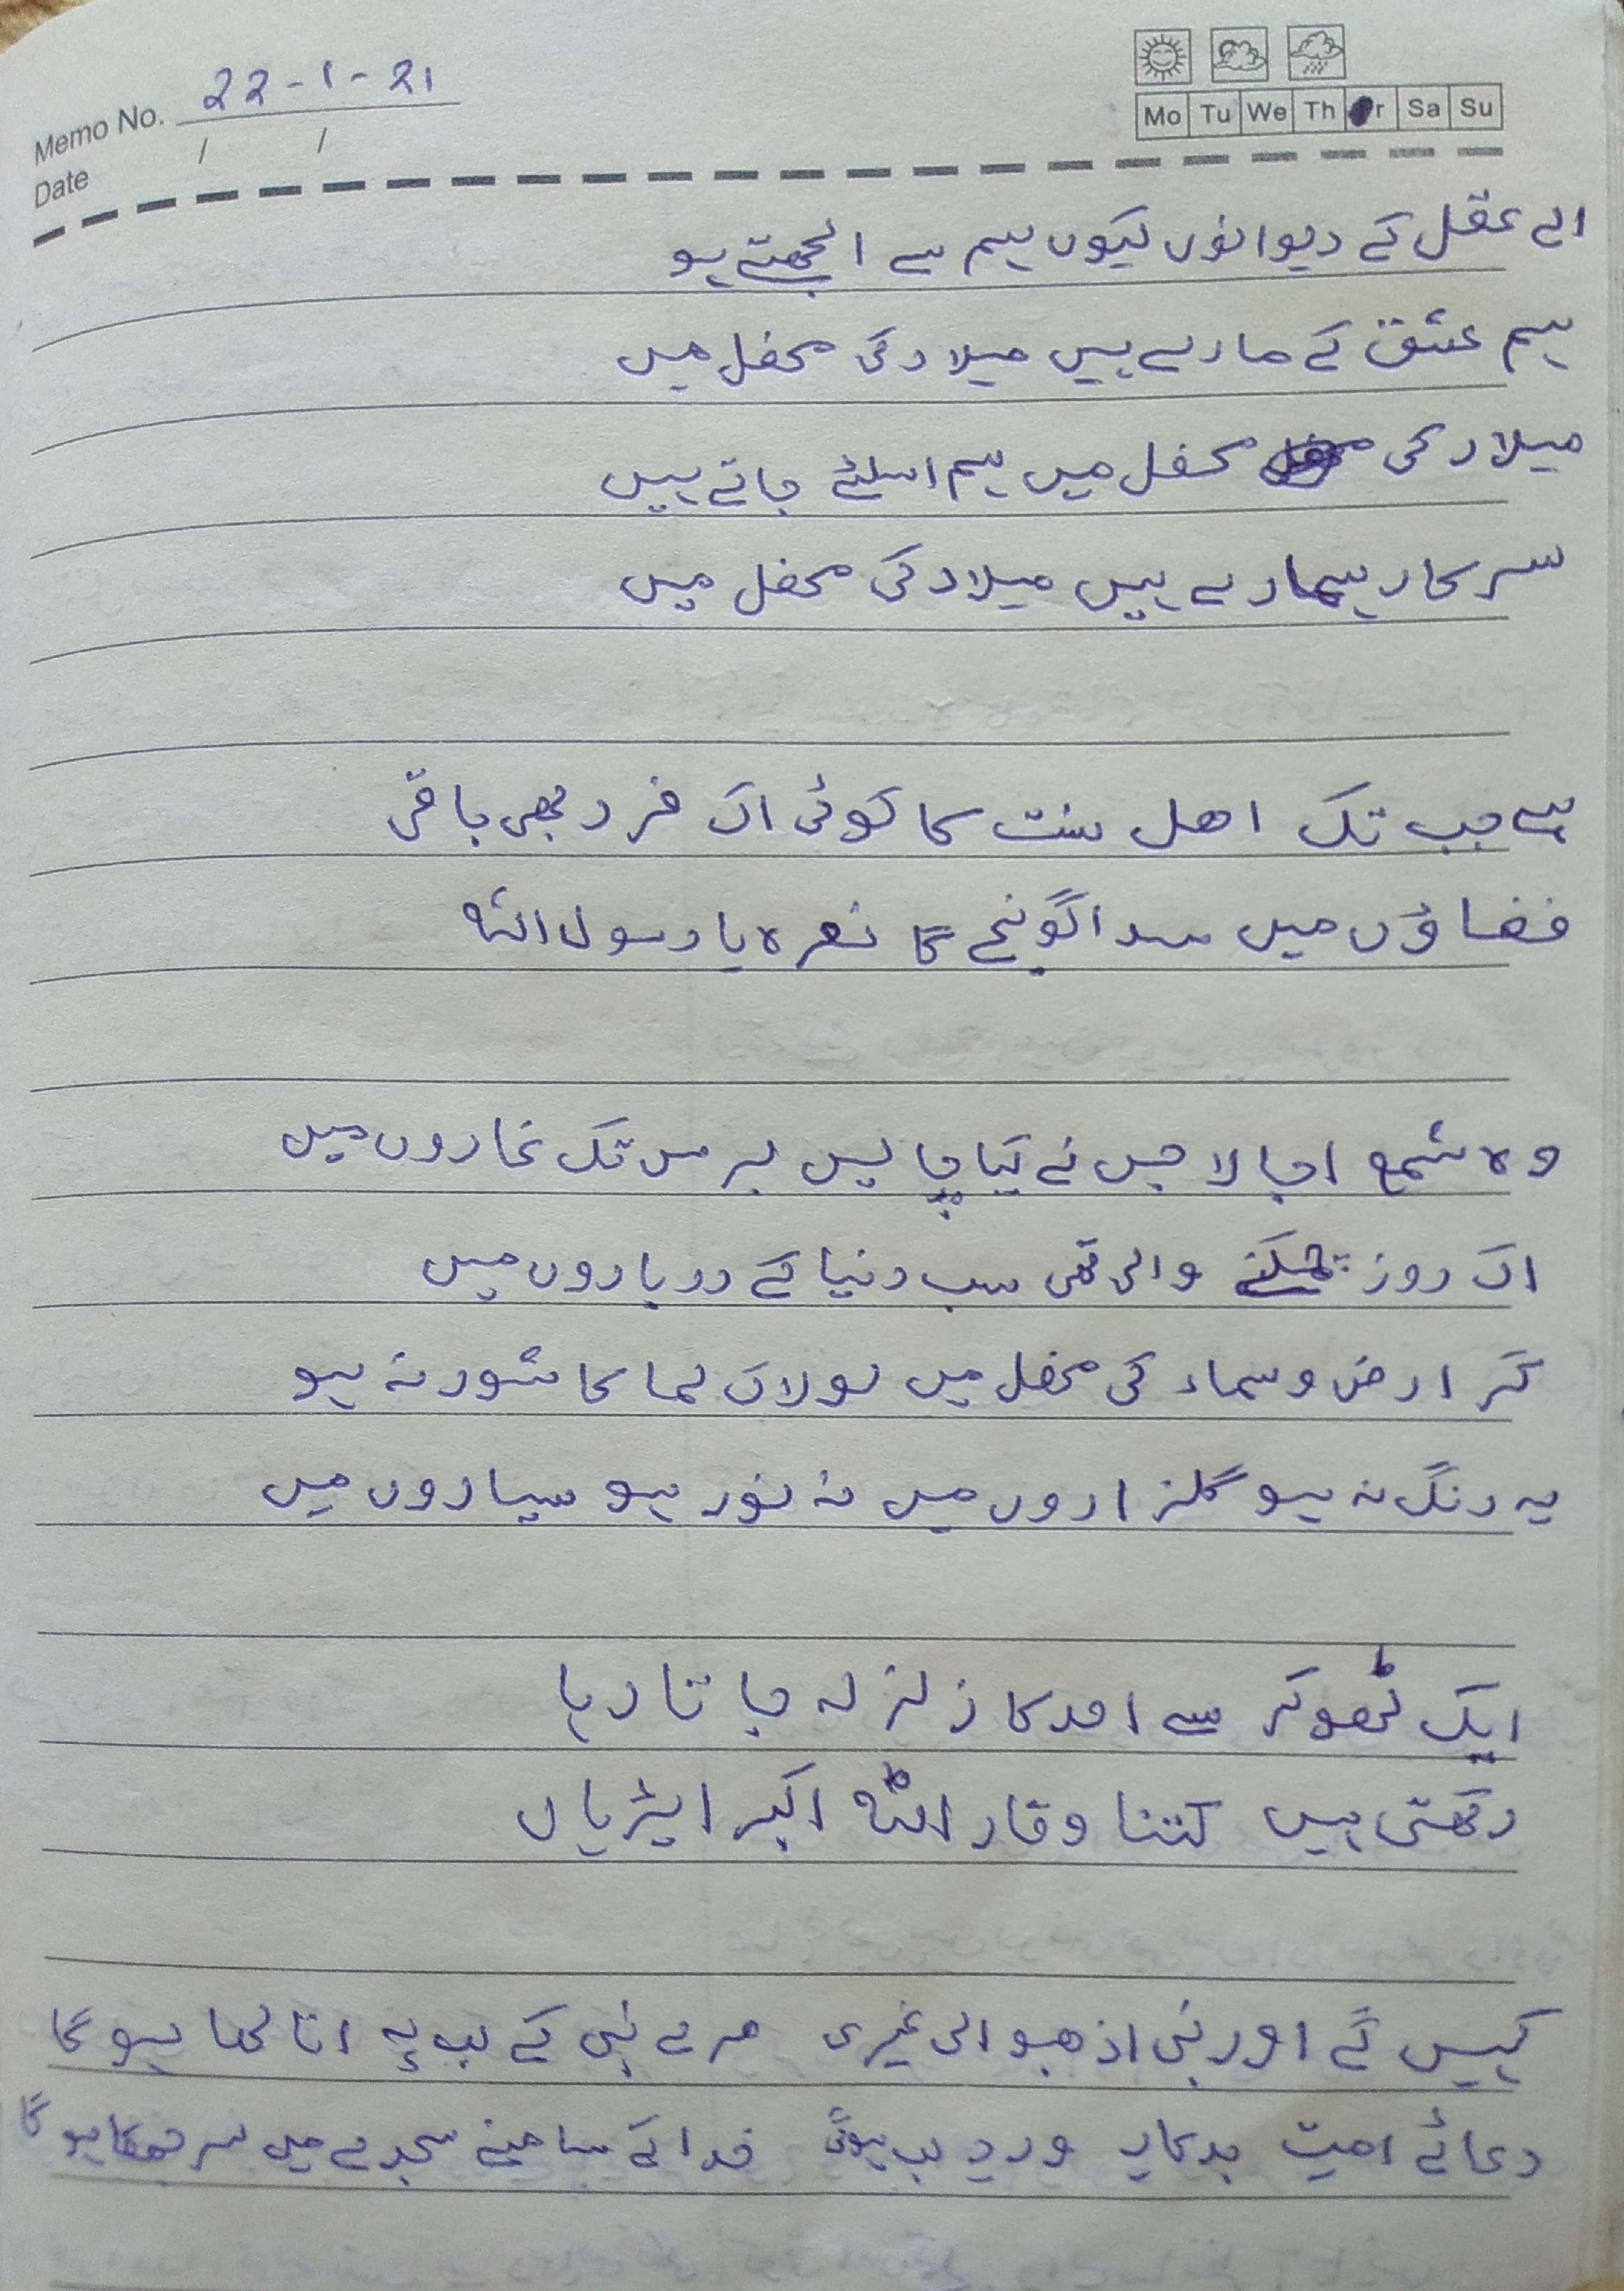 Memo No. 22-1-21
Date / /
Mo Tu We Th Fr Sa Su
اے عقل کے دیوانوں کیوں ہم سے الجھتے ہو
ہم عشق کے مارے ہیں میلاد کی محفل میں
میلاد کی محفل میں ہم اسلئے جاتے ہیں
سرکار ہمارے ہیں میلاد کی محفل میں
ہے جب تک اھل سنت کا کوئی اک فرد بھی باقی
فضاؤں میں سدا گونجے گا نعرہ یا رسول اللہ
وہ شمع اجالا جس نے کیا چالیس برس تک غاروں میں
اک روز چمکنے والی تھی سب دنیا کے درباروں میں
گر ارض و سماء کی محفل میں لولاک لما کا شور نہ ہو
یہ رنگ نہ ہو گلزاروں میں نہ نور ہو سیاروں میں
ایک ٹھوکر سے احد کا زلزلہ جاتا رہا
رکھتی ہیں کتنا وقار اللہ اکبر ایڑیاں
کہیں گے اور نبی اذھبو الی غیری مرے نبی کے لب پہ انا لھا ہو گا
دعائے امت بدکار ورد لب ہوگی خدا کے سامنے سجدے میں سر جھکا ہو گا